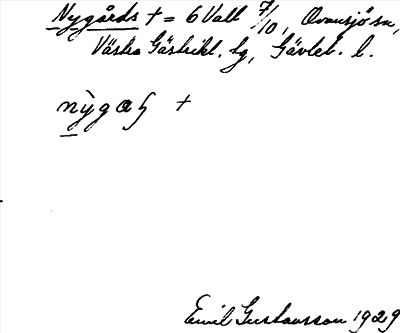 Nygårds + = 6 Vall 7/10, Ovansjö sn,
Västra Gästrikl. tg, Gävleb. l.
nỳgaɧ +
Emil Gustavsson 1929